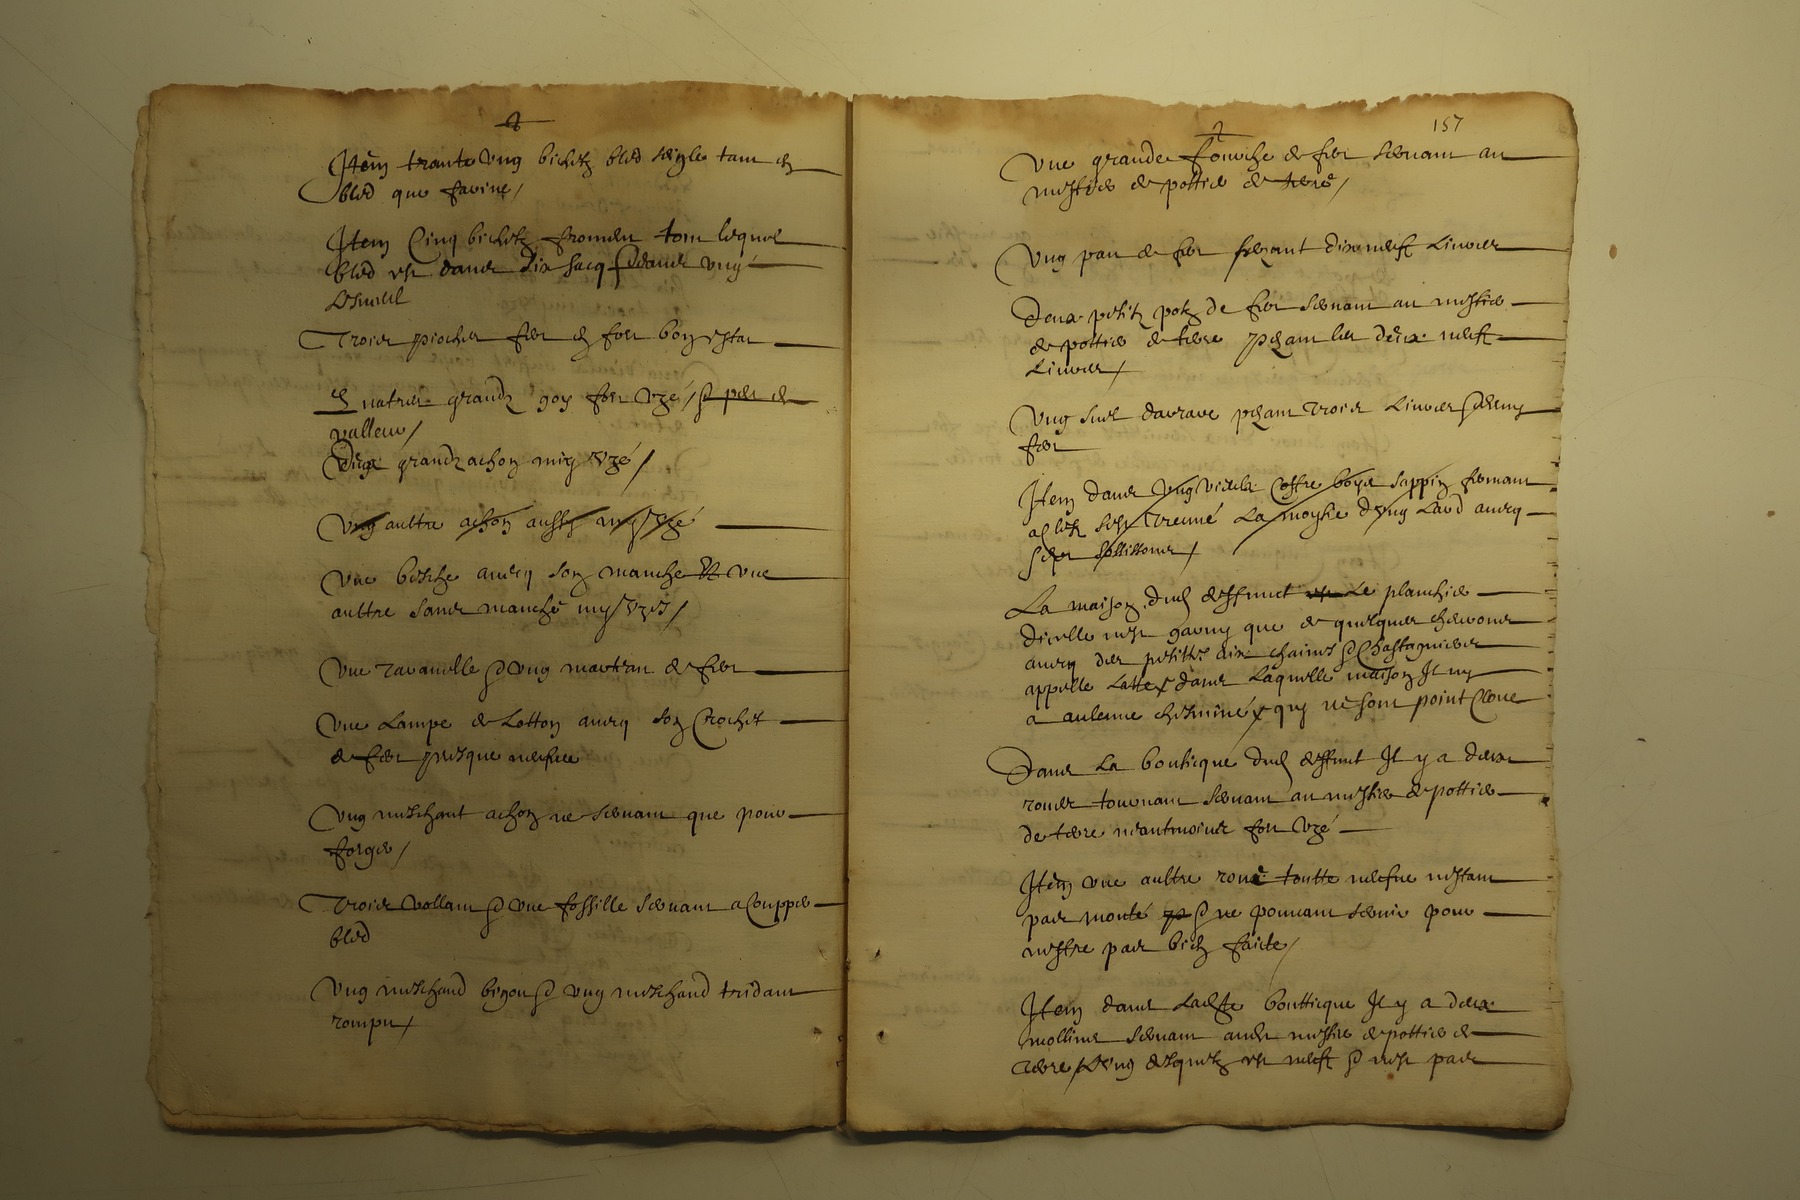 Item trante ung bichetz bled seigle tam en
bled que farine /
Item Cinq bichetz fromen tom lequel
bled est dans dix sacq & dans ung
Trois pioches fer en fort bon estat
quatres grandz goy fort uzé / & peu de
valleur /
Deux grandz achon my uzé /
Ung aultre achon aussy my uzé
Une besche avecq son manche et une
aultre sans manche my uzés /
Une ravanelle & ung marteau de fert
Une Lampe de Lotton avecq son Crochet
de fert presque neufve
Ung meschant achon ne servant que pour
forger /
Trois vollam & une fossille servant a Coupper
bled
Ung meschand bigou & ung meschand tridant
rompu /
157
Une grande fourche de fert servant au
mestier de pottier de terre /
Ung pau de fert pezant dix neuf Livres
Deux petitz potz de fert servant au mestier
de pottier de terre pezam les deux neuf
Livres /
Ung pezam Trois Livres & demy
fert
Item dans ung vieulx Coffre boys sappin fermant
a clefz s'est treuvé La moytié d'ung Lard avecq
La maison dud deffunct est Le planchier
dicelle n'est garny que de quelques chevrons
avecq des petittes aix chaines & Chastagniers
appelle Lattes dans Laquelle maison Il ny
a aulcune cheminée / qui ne sont point Cloue
Dans La bouticque dud deffunct Il y a deux
roues tournam servam au mestier de pottier
de terre neantmoins fort uzé
Item une aultre roue toutte neufve nestant
pas monté & ne pouvant servir pour
nestre pas bien faicte /
Item dans Ladte boutticque Il y a deux
mollins servam aud mestier de pottier de
Terre / L'ung desquelz est neuf & nest pas